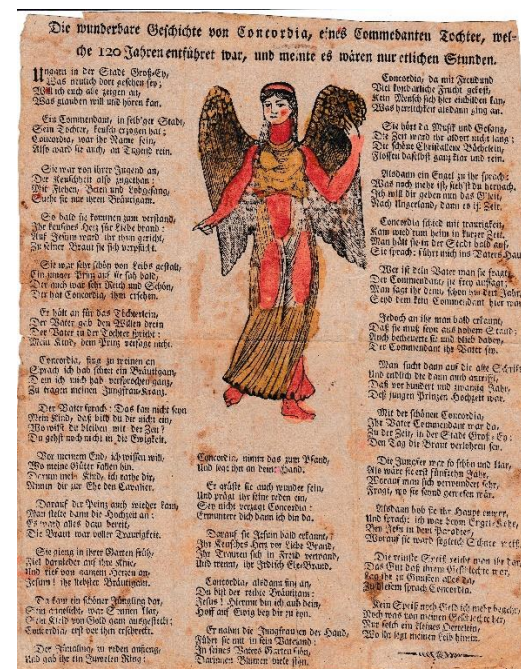 Die wunderbare Geschichte von Concordia, eines Commedanten Tochter, wel-
che 120 Jahren entführet war, und meinte es wären nur etlichen Stunden.
Ungarn in der Stadt Groß-Ey,
Was neulich dort geschehen sey;
Will ich euch alle zeigen an,
Was glauben will und hören kan.
Ein Commendant, in selb'ger Stadt,
Sein Tochter, keusch erzogen hat;
Concordia, war ihr Name sein,
Also ward sie auch, an Tugend rein.
Sie war von ihrer Jugend an,
Der Keuschheit also zugethan:
Mit Flehen, Beten und Lobgesang,
Sucht sie nur ihren Bräutigam.
So bald sie kommen zum verstand,
Ihr keusches Herz für Liebe brand:
Auf Jesum ward ihr thun gericht,
Zu seiner Braut sie sich verpflicht.
Sie war sehr schön von Leibs gestalt,
Ein junger Prinz auf sie sah bald,
Der auch war sehr Reich und Schön,
Der hat Concordia, ihm ersehen.
Er hält an für das Töchterlein,
Der Vater gab den Willen drein
Der Vater zu der Tochter spricht:
Mein Kind, dem Prinz versage nicht.
Concordia, fing zu weinen an
Sprach ich hab schon ein Bräutigam,
Dem ich mich hab versprochen ganz,
Zu tragen meinen Jungfrau-Kranz.
Der Vater sprach: Das kan nicht seyn
Mein Kind, daß bild du dir nicht ein,
Wo willst du bleiben mit der Zeit?
Du gehst noch nicht in die Ewigkeit.
Vor meinem End, ich wissen will,
Wo meine Güter fallen hin.
Darum mein Kind, ich rathe dir,
Nimm dir zur Ehe den Cavalier.
Darauf der Prinz auch wieder kam,
Man stellte dann die Hochzeit an:
Es ward alles dazu bereit,
Die Braut war voller Traurigkeit.
Sie gieng in ihren Garten früh,
Fiel darnieder auf ihre Knie,
Und rief von ganzen Herzen an,
Jesum! ihr liebster Bräutigam.
Da kam ein schöner Jüngling dar,
Sein Kleid von Gold gam ausgestellt:
Concordia, erst vor ihm erschreckt.
Der Jüngling, zu reden anfieng,
Und gab ihr ein Juwelen Ring:
Concordia, nimm das zum Pfand,
Und legt ihn an deine Hand.
Er grüßte sie auch wunder fein,
Und prägt ihr seine reden ein,
Sey nicht verzagt Concordia:
Ermuntere dich dann ich bin da.
Darauf sie Jesum bald erkannt,
Ihr Keusches Herz vor Liebe Brand.
Ihr Trauren sich in Freud verwand,
Und trennt, ihr Irdisch Ehe-Brand.
Concordia, alsdann fing an,
Du bist der rechte Bräutigam:
Jesus! Hierum bin ich auch dein,
Hoff auf Ewig bey dir zu seyn.
Er nahm die Jungfrauen der Hand,
Führt sie mit in sein Vaterland:
In seines Vaters Garten schön,
Darinnen Blumen viele stehn.
Concordia, da mit Freud und
Viel sonderliche Frucht
Kein Mensch sich hier einbilden kan,
Was herrlichkeit alsdann ging an.
Sie hört da Musik und Gesang,
Die Zeit ward ihr aldort nicht lang:
Die schöne Christallene Bächelein,
Flossen daselbst ganz klar und rein.
Alsdann ein Engel zu ihr sprach:
Was noch mehr ist, siehst du hernach.
Ich will dir geben nun das G'leit,
Nach Ungerland, dann es ist Zeit.
Concordia schied mit traurigkeit,
Kam wied'rum heim in kurzer Zeit,
Man hält sie in der Stadt bald auf,
Sie sprach: führt mich ins Vaters Haus.
Wer ist dein Vater man sie fragt,
Der Commendante, sie frey aussagt:
Man sagt ihr dann, schon vor drey Jahr,
Seyd dem kein Commendant hier war.
Jedoch an ihr man bald erkannt,
Daß sie muß seyn aus hohem Stand:
Auch betheuerte sie und blieb dabey,
Der Commendant ihr Vater sey.
Man sucht dann auf die alte Schrift,
Und endlich die dann auch antrifft,
Daß vor hundert und zwanzig Jahr,
Deß jungen Prinzen Hochzeit war.
Mit der schönen Concordia,
Ihr Vater Commendant war da,
Zu der Zeit, in der Stadt Groß-Ey:
Den Tag die Braut verlohren sey.
Die Jungfer war so schön und klar,
Als wäre sie erst fünfzehn Jahr,
Worauf man sich verwundert sehr,
Fragt, wo sie seynd gewesen wär.
Alsdann hob sie ihr Haupt empor,
Und sprach: ich war beym Engel-Chor,
Bey Jesu in dem Paradies,
Worauf sie ward sogleich Schnee weiß.
Die reinste Speiß reicht man ihr dar,
Zu diesem sprach Concordia.
Kein Speiß noch Geld ich mehr begehr,
Noch was von meinen Gütern wär,
Nur bloß ein kleines Oertelein,
Wo ihr legt meinen Leib hinein.